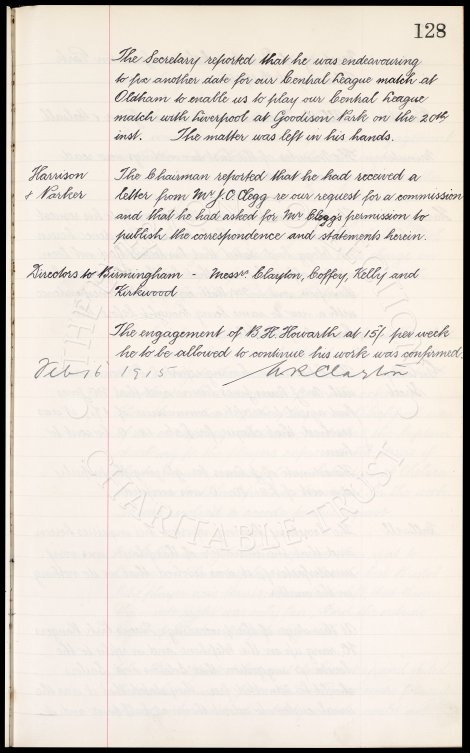 128
The Secretary reported that he was endeavouring
to fix another date for our Central League match at
Oldham to enable us to play our Central League
match with Liverpool at Goodison Park on the 20th
inst. The matter was left in his hands.
Harrison The Chairman reported that he had received a
& Parker letter from Mr J.C. Clegg re our request for a commission
and that he had asked for Mr Clegg's permission to
publish the correspondence and statements herein.
Directors to Birmingham - Messrs. Clayton, Coffey, Kelly and
Kirkwood
The engagement of B.H. Howarth at 15/- per week
he to be allowed to continue his work was confirmed.
Feb 16 1915 W R Clayton
CHARITABLE TRUST